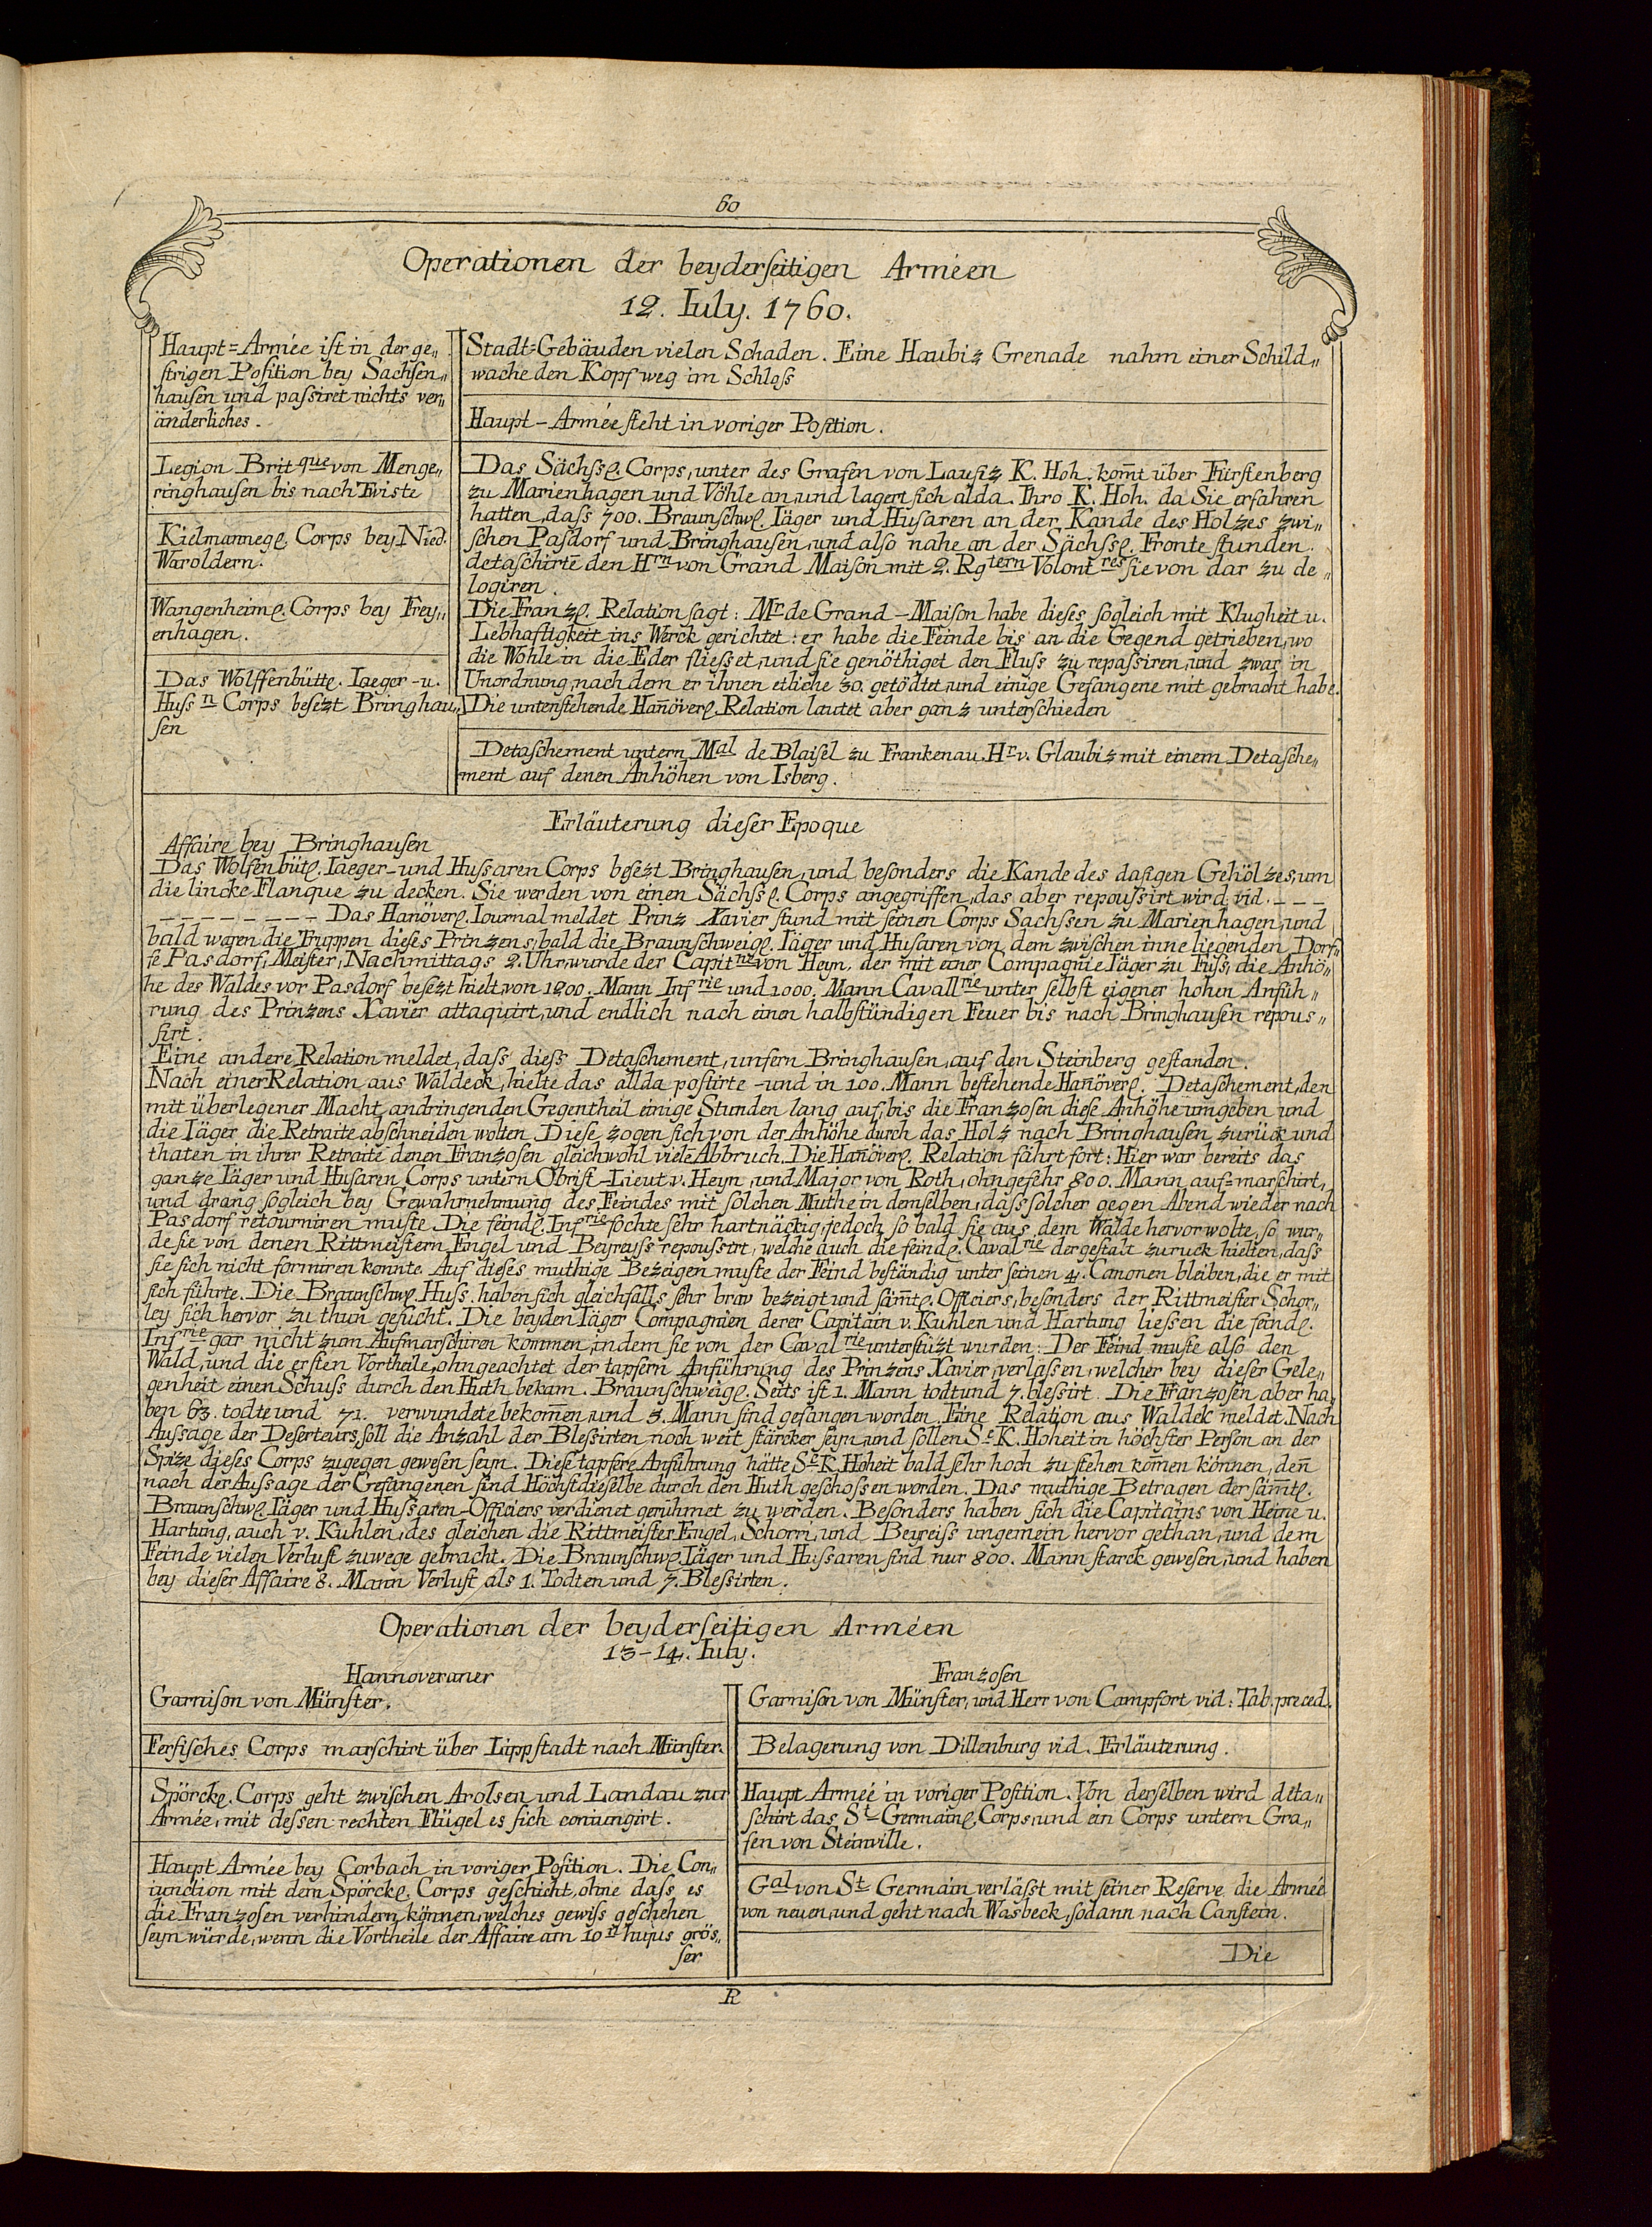 60
Operationen der beyderseitigen Arméen
12. Iuly. 1760.
Haupt=Armée ist in der ge„
strigen Position bey Sachsen„
hausen und passiret nichts ver„
änderliches.
Legion Britque von Menge„
ringhausen bis nach Twiste
Kielmannegl. Corps bey Nied.
Waroldern.
Wangenheiml. Corps bey Frey„
enhagen.
Das Wolffenbüttl. Iaeger-u.
Hussn Corps besezt Bringhau„
sen
Stadt=Gebäuden vielen Schaden. Eine Haubiz Grenade nahm einer Schild„
wache den Kopf weg im Schloss
Haupt-Armée steht in voriger Position.
Das Sächssl. Corps, unter des Grafen von Lausiz K. Hoh. kom̄t über Fürstenberg
zu Marienhagen und Vöhle an, und lagert sich alda. Ihro K. Hoh. da Sie erfahren
hatten, dass 700. Braunschwl. Iäger und Husaren an der Kande des Holzes zwi„
schen Pasdorf und Bringhausen, und also nahe an der Sächssl. Fronte stunden.
detaschirte den Hrn von Grand Maison mit 2. Rgtern Volontres sie von dar zu de„
logiren.
Die Franzl. Relation sagt: Mr de Grand-Maison habe dieses sogleich mit Klugheit u.
Lebhaftigkeit ins Werck gerichtet: er habe die Feinde bis an die Gegend getrieben, wo
die Wohle in die Eder fliesset, und sie genöthiget den Fluss zu repassiren, und zwar in
Unordnung, nach dem er ihnen etliche 30. getödtet, und einige Gefangene mit gebracht habe.
Die untenstehende Han̄överl. Relation lautet aber ganz unterschieden
Detaschement untern Mal de Blaisel zu Frankenau. Hr v. Glaubiz mit einem Detasche„
ment auf denen Anhöhen von Isberg.
Erläuterung dieser Epoque
Affaire bey Bringhausen
Das Wolfenbütl. Iaeger-und Hussaren Corps besezt Bringhausen, und besonders die Kande des dasigen Gehölzes, um
die lincke Flanque zu decken. Sie werden von einen Sächssl. Corps angegriffen, das aber repoussirt wird. vid. - - -
- - - - - - - - Das Hanöverl. Iournal meldet Prinz Xavier stund mit seinen Corps Sachssen zu Marienhagen, und
bald waren die Truppen dieses Prinzens, bald die Braunschweigl. Iäger und Husaren von dem zwischen inne liegenden Dorf„
fe Pasdorf, Meister, Nachmittags 2. Uhr, wurde der Capitne von Heyn, der mit einer Compagnie Iäger zu Fuss, die Anhö„
he des Waldes vor Pasdorf besezt hielt, von 1200. Mann Infrie und 1000. Mann Cavallrie unter selbst eigener hohen Anfüh„
rung des Prinzens Xavier attaquirt, und endlich nach einen halbstündigen Feuer bis nach Bringhausen repous„
sirt.
Eine andere Relation meldet, dass diess Detaschement, unfern Bringhausen, auf den Steinberg gestanden.
Nach einer Relation aus Waldeck, hielte das allda postirte-und in 100. Mann bestehende Han̄överl. Detaschement, den
mit überlegener Macht, andringenden Gegentheil einige Stunden lang auf, bis die Franzosen diese Anhöhe umgeben und
die Iäger die Retraite abschneiden wolten. Diese zogen sich von der Anhöhe durch das Holz nach Bringhausen zurück und
thaten in ihrer Retraite denen Franzosen gleichwohl viele Abbruch. Die Han̄överl. Relation fährt fort: Hier war bereits das
ganze Iäger und Husaren Corps untern Obrist-Lieut v. Heyn, und Major von Roth, ohngefehr 800. Mann auf=marschirt,
und drang sogleich bey Gewahrnehmung des Feindes mit solchen Muthe in demselben, dass solcher gegen Abend wieder nach
Pasdorf retourniren muste. Die feindl. Infrie fochte sehr hartnäckig, jedoch so bald sie aus dem Walde hervor wolte, so wur„
de sie von denen Rittmeistern Engel und Beyreyss repoussirt, welche auch die feindl. Cavalrie dergestalt zuruck hielten, dass
sie sich nicht formiren konnte. Auf dieses muthige Bezeigen muste der Feind beständig unter seinen 4. Canonen bleiben, die er mit
sich führte. Die Braunschwl. Huss. haben sich gleichfalls sehr brav bezeigt und säm̄tl. Officiers, besonders der Rittmeister Schor„
ley sich hervor zu thun gesucht. Die beyden Iäger Compagnien derer Capitain v. Kuhlen und Hartung liessen die feindl.
Infrie gar nicht zum Aufmarschiren kommen, indem sie von der Cavalrie unterstüzt wurden. Der Feind muste also den
Wald, und die ersten Vortheile, ohngeachtet der tapfern Anführung des Prinzens Xavier, verlassen, welcher bey dieser Gele„
genheit einen Schuss durch den Huth bekam. Braunschweigl. Seits ist 1. Mann todt und 7. blessirt. Die Franzosen aber ha„
ben 63. todte und 71. verwundete bekom̄en, und 3. Mann sind gefangen worden. Eine Relation aus Waldek meldet. Nach
Aussage der Deserteurs, soll die Anzahl der Blessirten noch weit stärcker seyn, und sollen Se K. Hoheit in höchster Person an der
Spize dieses Corps zugegen gewesen seyn. Diese tapfere Anführung hätte Se K. Hoheit bald sehr hoch zu stehen kom̄en können, den̄
nach der Aussage der Gefangenen sind Höchstdieselbe durch den Huth geschossen worden. Das muthige Betragen der säm̄tl.
Braunschwl. Iäger und Hussaren-Officiers verdienet gerühmet zu werden. Besonders haben sich die Capitains von Heine u.
Hartung, auch v. Kuhlen, des gleichen die Rittmeister Engel, Schorri, und Beyreiss ungemein hervor gethan, und dem
Feinde vielen Verlust zuwege gebracht. Die Braunschwl. Iäger und Hussaren sind nur 800. Mann starck gewesen, und haben
bey dieser Affaire 8. Mann Verlust als 1. Todten und 7. Blessirten.
Operationen der beyderseitigen Arméen
13-14. Iuly.
Hannoveraner
Garnison von Münster.
Fersisches Corps marschirt über Lippstadt nach Münster.
Spörckl. Corps geht zwischen Arolsen und Landau zur
Armée, mit dessen rechten Flügel es sich coniungirt.
Haupt Armée bey Corbach in voriger Position. Die Con„
iunction mit dem Spörckl. Corps geschicht, ohne dass es
die Franzosen verhindern können, welches gewiss geschehen
seyn würde, wenn die Vortheile der Affaire am 10n hujus grös„
ser
Franzosen
Garnison von Münster, und Herr von Campfort vid: Tab. preced.
Belagerung von Dillenburg vid. Erläuterung.
Haupt Armée in voriger Position. Von derselben wird deta„
schirt das St Germainl. Corps, und ein Corps untern Gra„
fen von Steinville.
Gal von St Germain verlässt mit seiner Reserve die Armée
von neuen, und geht nach Wasbeck, sodann nach Canstein.
Die
R